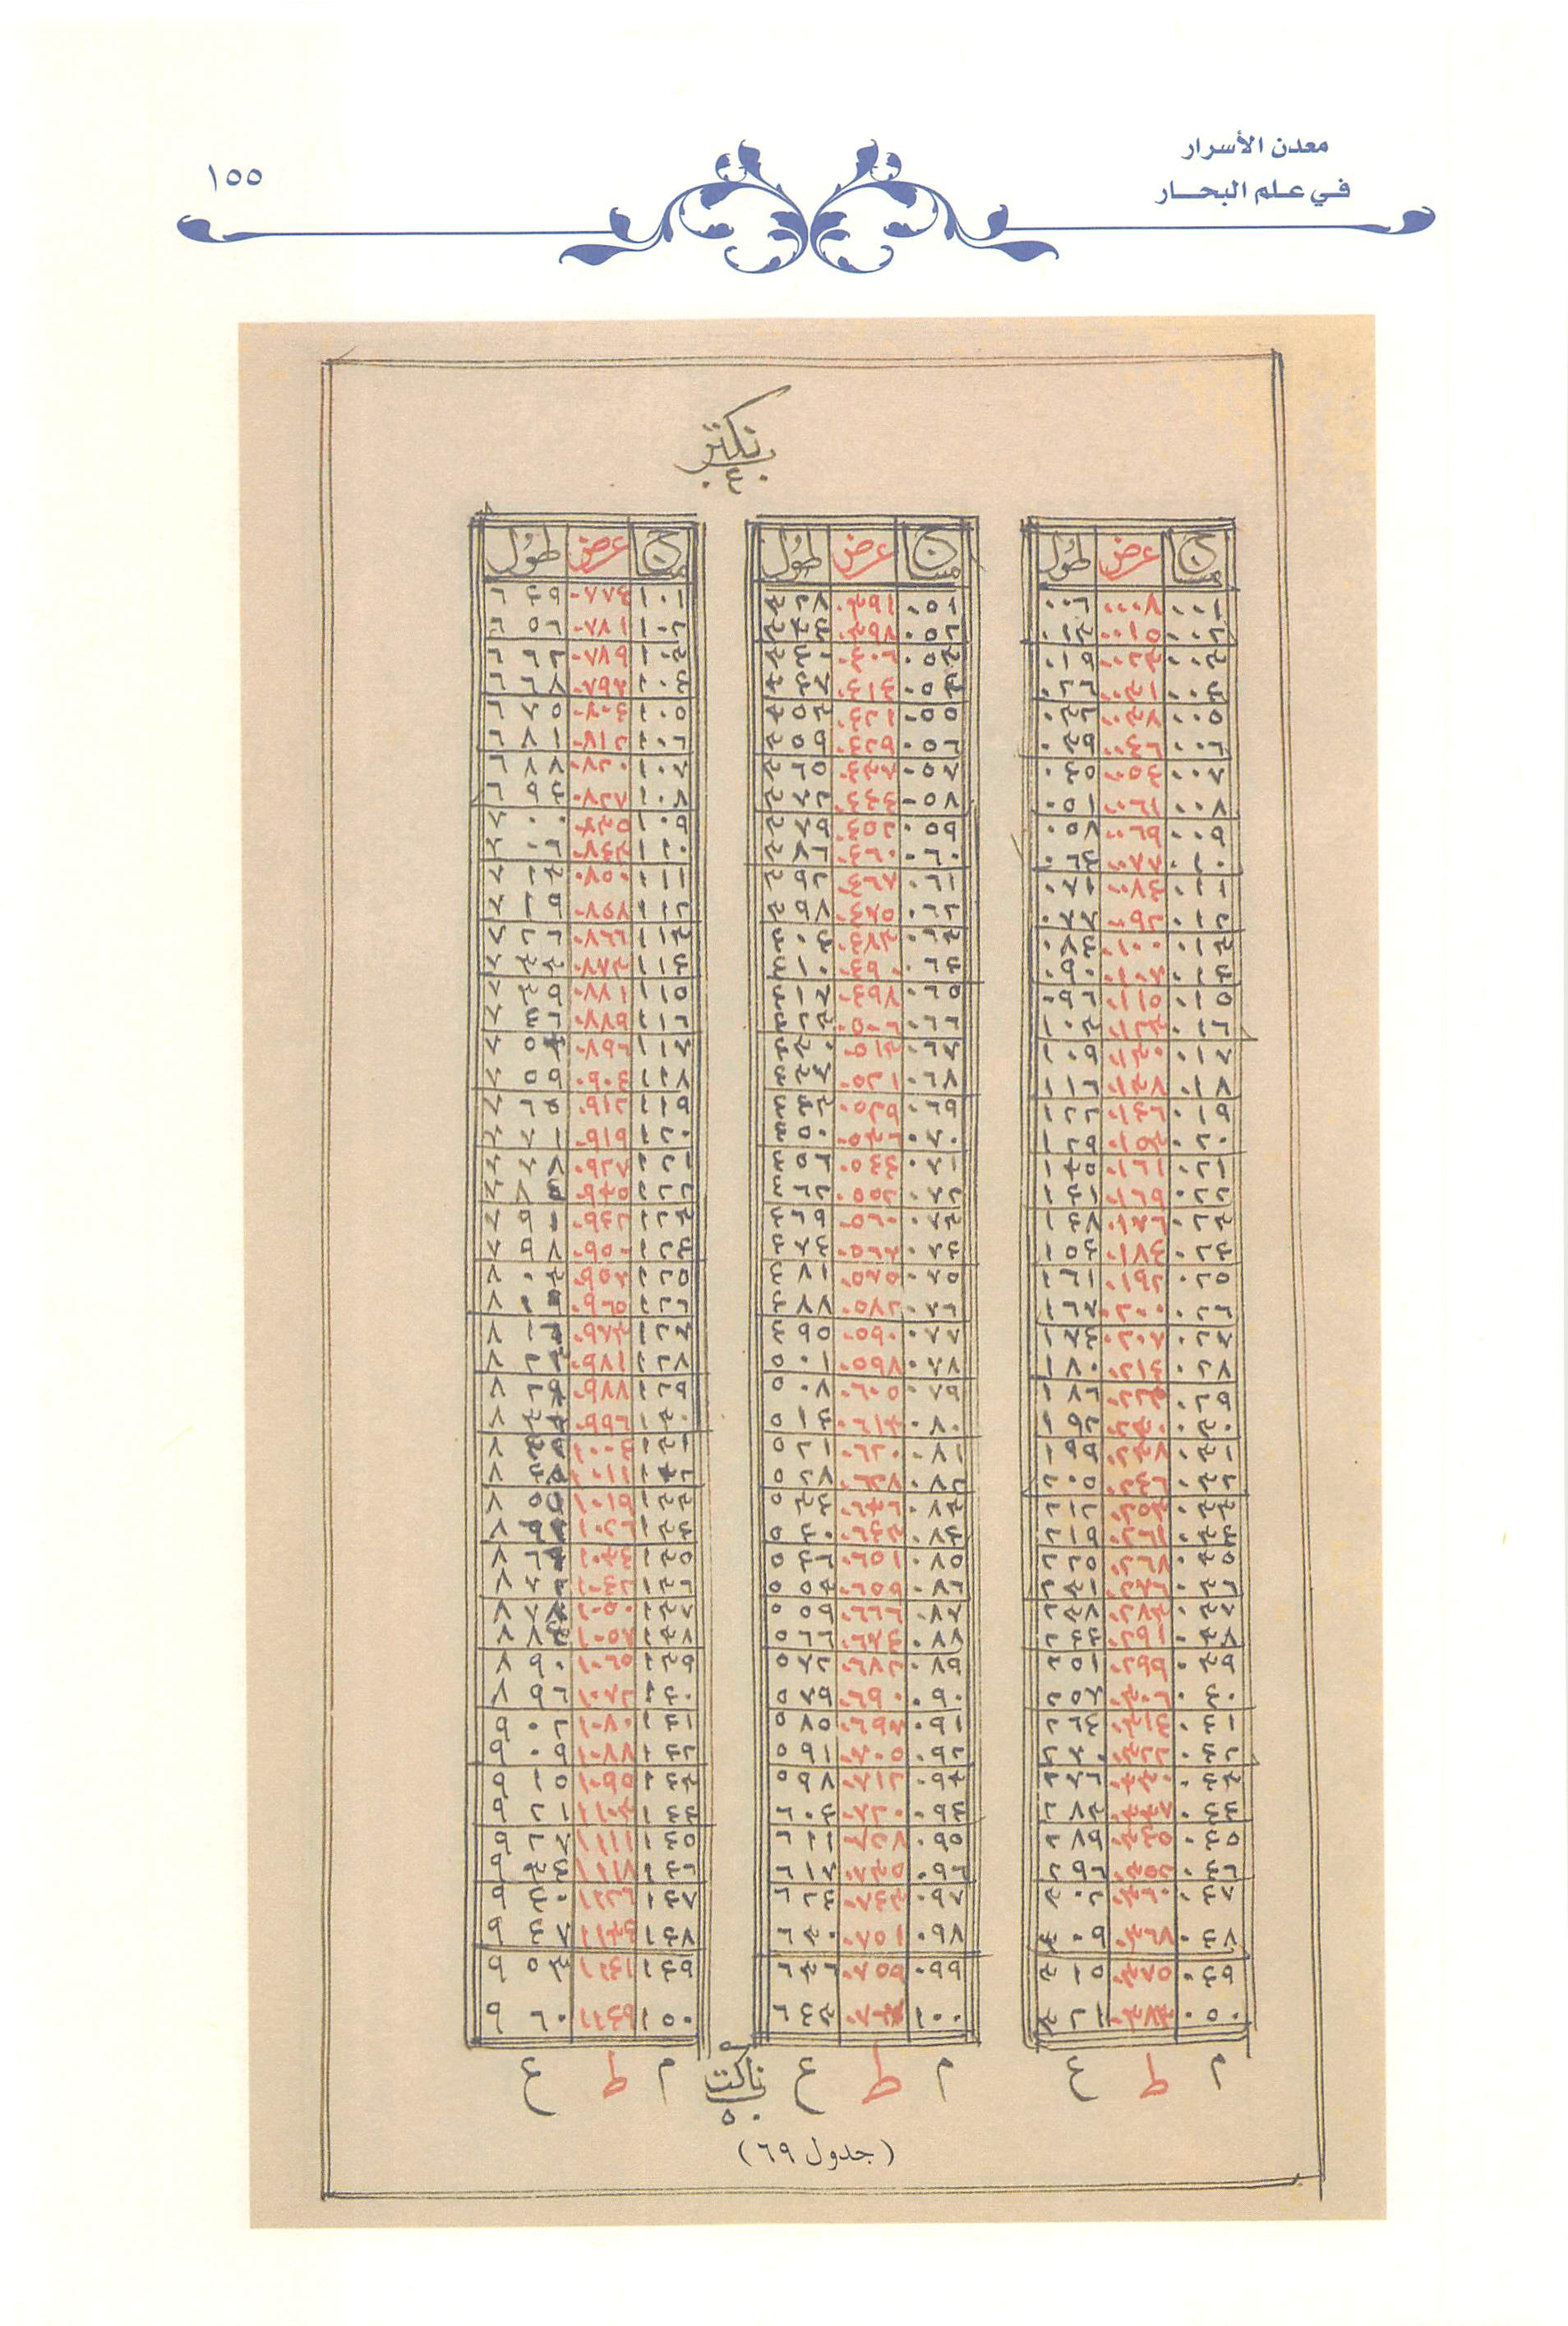 معدن الأسرار
في علم البحار
١٥٥
نكتر
٤٠
مساج عرض طول
٠٠١ ٠٠٠٨ ٠٠٦
٠٠٢ ٠٠١٥ ٠١٣
٠٠٣ ٠٠٢٣ ٠١٩
٠٠٤ ٠٠٣١ ٠٢٦
٠٠٥ ٠٠٣٨ ٠٣٢
٠٠٦ ٠٠٤٦ ٠٣٩
٠٠٧ ٠٠٥٤ ٠٤٥
٠٠٨ ٠٠٦١ ٠٥١
٠٠٩ ٠٠٦٩ ٠٥٨
٠١٠ ٠٠٧٧ ٠٦٤
٠١١ ٠٠٨٤ ٠٧١
٠١٢ ٠٠٩٢ ٠٧٧
٠١٣ ٠١٠٠ ٠٨٤
٠١٤ ٠١٠٧ ٠٩٠
٠١٥ ٠١١٥ ٠٩٦
٠١٦ ٠١٢٣ ١٠٣
٠١٧ ٠١٣٠ ١٠٩
٠١٨ ٠١٣٨ ١١٦
٠١٩ ٠١٤٦ ١٢٢
٠٢٠ ٠١٥٣ ١٢٩
٠٢١ ٠١٦١ ١٣٥
٠٢٢ ٠١٦٩ ١٤١
٠٢٣ ٠١٧٦ ١٤٨
٠٢٤ ٠١٨٤ ١٥٤
٠٢٥ ٠١٩٢ ١٦١
٠٢٦ ٠٢٠٠ ١٦٧
٠٢٧ ٠٢٠٧ ١٧٤
٠٢٨ ٠٢١٤ ١٨٠
٠٢٩ ٠٢٢٢ ١٨٦
٠٣٠ ٠٢٣٠ ١٩٢
٠٣١ ٠٢٣٨ ١٩٩
٠٣٢ ٠٢٤٦ ٢٠٥
٠٣٣ ٠٢٥٣ ٢١٢
٠٣٤ ٠٢٦١ ٢١٩
٠٣٥ ٠٢٦٨ ٢٢٥
٠٣٦ ٠٢٧٦ ٢٣١
٠٣٧ ٠٢٨٣ ٢٣٨
٠٣٨ ٠٢٩١ ٢٤٤
٠٣٩ ٠٢٩٩ ٢٥١
٠٤٠ ٠٣٠٦ ٢٥٧
٠٤١ ٠٣١٤ ٢٦٤
٠٤٢ ٠٣٢٢ ٢٧٠
٠٤٣ ٠٣٣٠ ٢٧٦
٠٤٤ ٠٣٣٧ ٢٨٣
٠٤٥ ٠٣٤٥ ٢٨٩
٠٤٦ ٠٣٥٢ ٢٩٦
٠٤٧ ٠٣٦٠ ٣٠٢
٠٤٨ ٠٣٦٨ ٣٠٩
٠٤٩ ٠٣٧٥ ٣١٥
٠٥٠ ٠٣٨٣ ٣٢١
م ط ع
مساج عرض طول
٠٥١ ٠٣٩١ ٣٢٨
٠٥٢ ٠٣٩٨ ٣٣٤
٠٥٣ ٠٤٠٦ ٣٤١
٠٥٤ ٠٤١٤ ٣٤٧
٠٥٥ ٠٤٢١ ٣٥٣
٠٥٦ ٠٤٢٩ ٣٥٩
٠٥٧ ٠٤٣٧ ٣٦٥
٠٥٨ ٠٤٤٤ ٣٧٢
٠٥٩ ٠٤٥٢ ٣٧٩
٠٦٠ ٠٤٦٠ ٣٨٦
٠٦١ ٠٤٦٧ ٣٩٢
٠٦٢ ٠٤٧٥ ٣٩٨
٠٦٣ ٠٤٨٣ ٤٠٤
٠٦٤ ٠٤٩٠ ٤١٠
٠٦٥ ٠٤٩٨ ٤١٧
٠٦٦ ٠٥٠٦ ٤٢٣
٠٦٧ ٠٥١٣ ٤٣٠
٠٦٨ ٠٥٢١ ٤٣٧
٠٦٩ ٠٥٢٩ ٤٤٣
٠٧٠ ٠٥٣٦ ٤٥٠
٠٧١ ٠٥٤٤ ٤٥٦
٠٧٢ ٠٥٥٢ ٤٦٢
٠٧٣ ٠٥٦٠ ٤٦٩
٠٧٤ ٠٥٦٧ ٤٧٤
٠٧٥ ٠٥٧٥ ٤٨١
٠٧٦ ٠٥٨٢ ٤٨٨
٠٧٧ ٠٥٩٠ ٤٩٥
٠٧٨ ٠٥٩٨ ٥٠١
٠٧٩ ٠٦٠٥ ٥٠٨
٠٨٠ ٠٦١٣ ٥١٤
٠٨١ ٠٦٢٠ ٥٢١
٠٨٢ ٠٦٢٨ ٥٢٧
٠٨٣ ٠٦٣٦ ٥٣٤
٠٨٤ ٠٦٤٣ ٥٤٠
٠٨٥ ٠٦٥١ ٥٤٦
٠٨٦ ٠٦٥٩ ٥٥٣
٠٨٧ ٠٦٦٦ ٥٥٩
٠٨٨ ٠٦٧٤ ٥٦٦
٠٨٩ ٠٦٨٢ ٥٧٢
٠٩٠ ٠٦٩٠ ٥٧٩
٠٩١ ٠٦٩٧ ٥٨٥
٠٩٢ ٠٧٠٥ ٥٩١
٠٩٣ ٠٧١٢ ٥٩٨
٠٩٤ ٠٧٢٠ ٦٠٤
٠٩٥ ٠٧٢٨ ٦١١
٠٩٦ ٠٧٣٥ ٦١٧
٠٩٧ ٠٧٤٣ ٦٢٤
٠٩٨ ٠٧٥١ ٦٣٠
٠٩٩ ٠٧٥٥ ٦٣٦
١٠٠ ٦٤٣
م ط ع
مساج عرض طول
١٠١ ٠٧٧٤ ٦٤٩
١٠٢ ٠٧٨١ ٦٥٦
١٠٣ ٠٧٨٩ ٦٦٢
١٠٤ ٠٧٩٧ ٦٦٨
١٠٥ ٠٨٠٤ ٦٧٥
١٠٦ ٠٨١٢ ٦٨١
١٠٧ ٠٨٢٠ ٦٨٨
١٠٨ ٠٨٢٧ ٦٩٤
١٠٩ ٠٨٣٥ ٧٠٠
١١٠ ٠٨٤٣ ٧٠٦
١١١ ٠٨٥٠ ٧١٣
١١٢ ٠٨٥٨ ٧١٩
١١٣ ٠٨٦٦ ٧٢٦
١١٤ ٠٨٧٣ ٧٣٣
١١٥ ٠٨٨١ ٧٣٩
١١٦ ٠٨٨٩ ٧٤٦
١١٧ ٠٨٩٦ ٧٥٣
١١٨ ٠٩٠٤ ٧٥٩
١١٩ ٠٩١٢ ٧٦٥
١٢٠ ٠٩١٩ ٧٧١
١٢١ ٠٩٢٧ ٧٧٨
١٢٢ ٠٩٣٥ ٧٨٤
١٢٣ ٠٩٤٢ ٧٩١
١٢٤ ٠٩٥٠ ٧٩٨
١٢٥ ٠٩٥٧ ٨٠٣
١٢٦ ٠٩٦٥
١٢٧ ٠٩٧٣ ٨١٦
١٢٨ ٠٩٨١ ٨٢٢
١٢٩ ٠٩٨٨ ٨٢٩
١٣٠ ٠٩٩٦
١٣١ ١٠٠٤
١٣٢ ١٠١١
١٣٣ ١٠١٩
١٣٤ ١٠٢٦
١٣٥ ١٠٣٤
١٣٦ ١٠٤٢
١٣٧ ١٠٥٠
١٣٨ ١٠٥٧
١٣٩ ١٠٦٥ ٨٩٠
١٤٠ ١٠٧٢ ٨٩٦
١٤١ ١٠٨٠ ٩٠٢
١٤٢ ١٠٨٨ ٩٠٩
١٤٣ ١٠٩٥ ٩١٥
١٤٤ ١١٠٣ ٩٢١
١٤٥ ١١١١ ٩٢٧
١٤٦ ١١١٨ ٩٣٤
١٤٧ ١١٢٦ ٩٤٠
١٤٨ ١١٣٤ ٩٤٧
١٤٩ ١١٤١ ٩٥٣
١٥٠ ١١٤٩ ٩٦٠
م ط ع
ناكت
٥٠
(جدول ٦٩)